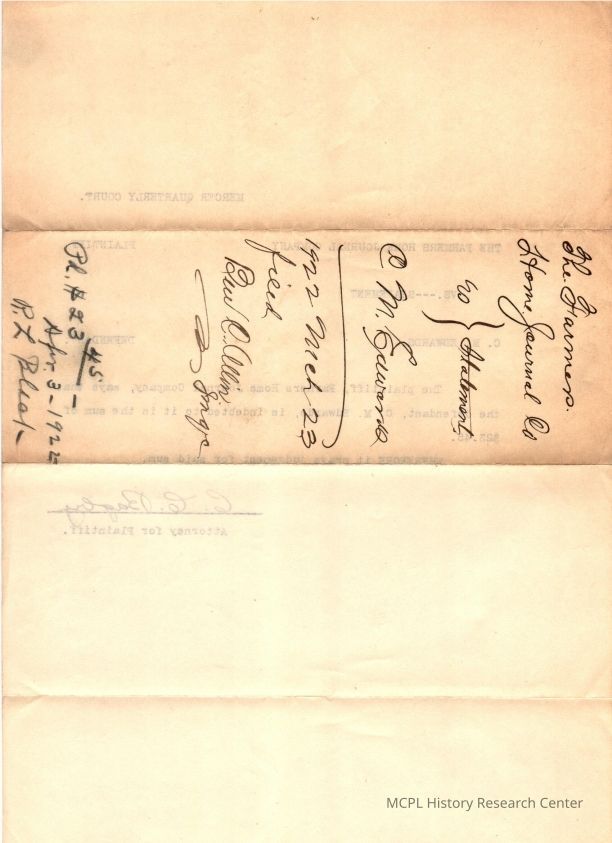 The Farmers
Home Journal Co
vs } Statement
C M. Edwards
1922 Mch 23
filed
Ben C. Allin
Pd. $23 45
Apr 3-1922
MERCER QUARTERLY COURT.
THE FARMERS HOME JOURNAL COMPANY PLAINTIFF
VS.---STATEMENT
C. M. EDWARDS DEFENDANT
The plaintiff, Farmers Home Journal Company, says that
the defendant, C. M. Edwards, is indebted to it in the sum of
$23.45.
WHEREFORE it prays judgment for said sum.
Attorney for Plaintiff.
MCPL History Research Center